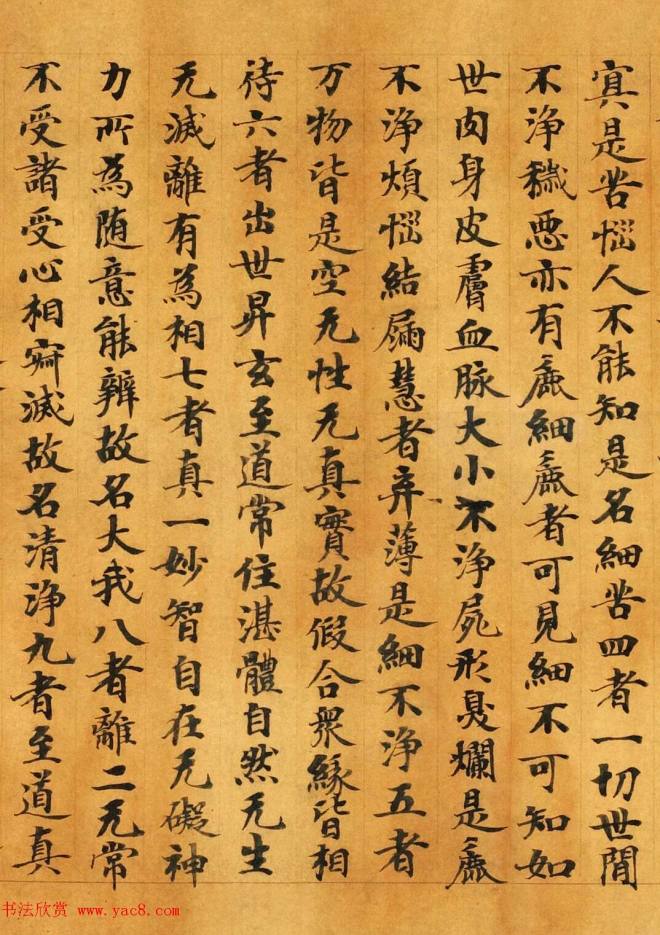 寘是苦惱人不能知是名細苦四者一切世間
不淨穢惡亦有麁細麁者可見細不可知如
世肉身皮膚血脉大小不淨屍形臭爛是麁
不淨煩惱結漏慧者弃薄是細不淨五者
万物皆是空无性无真實故假合衆緣皆相
待六者出世昇玄至道常住湛體自然无生
无滅離有為相七者真一妙智自在无礙神
力所為随意能辨故名大我八者離二无常
不受諸受心相寂滅故名清淨九者至道真
书法欣赏 www.yac8.com